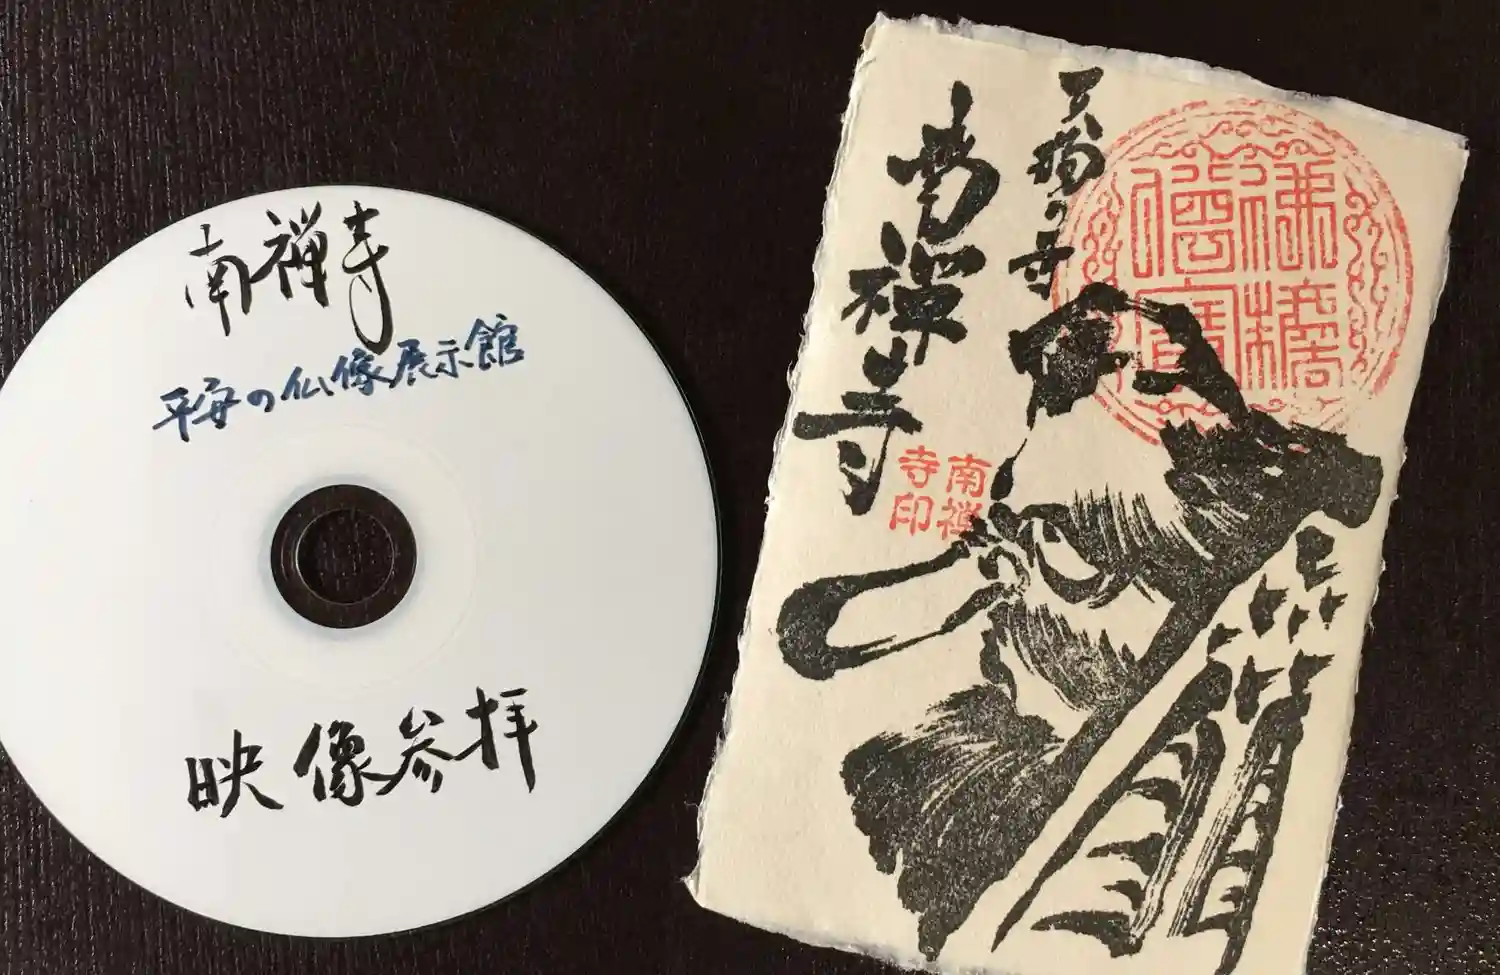 南禅寺
平安の仏像展示館
映像参拝
天狗の寺
南禅寺
佛法僧寶
南禅
寺印